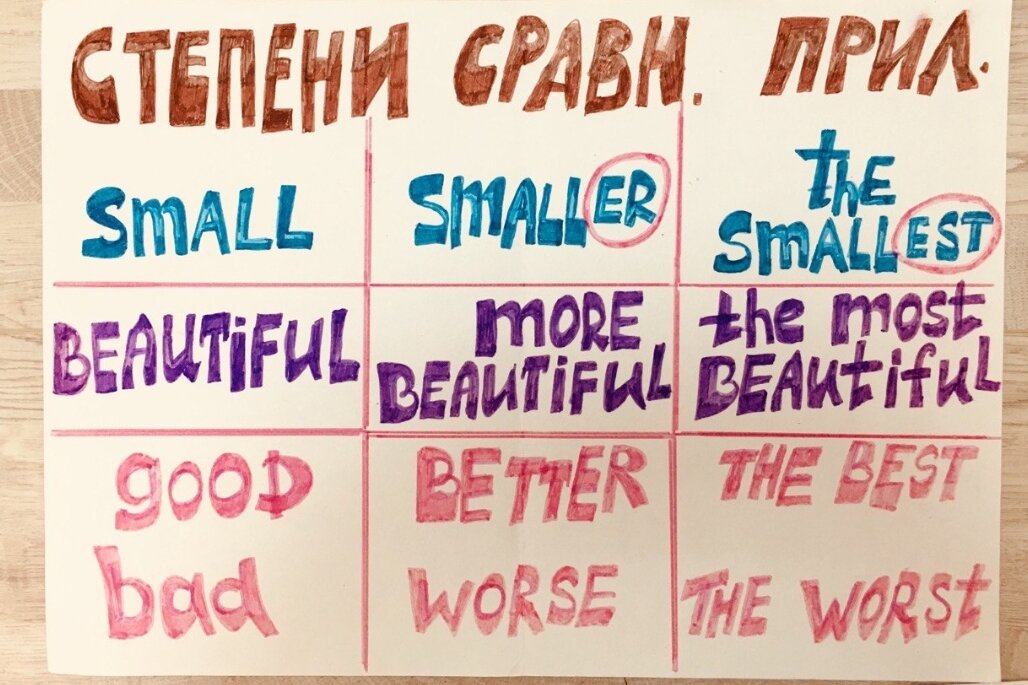 СТЕПЕНИ СРАВН. ПРИЛ.
SmALL SmALLER the SmALLEST
BEAUTiFUL mORE BEAUTiFUL the most BEAUtifuL
gOOD BETTER THE BEST
bad WORSE THE WORSt